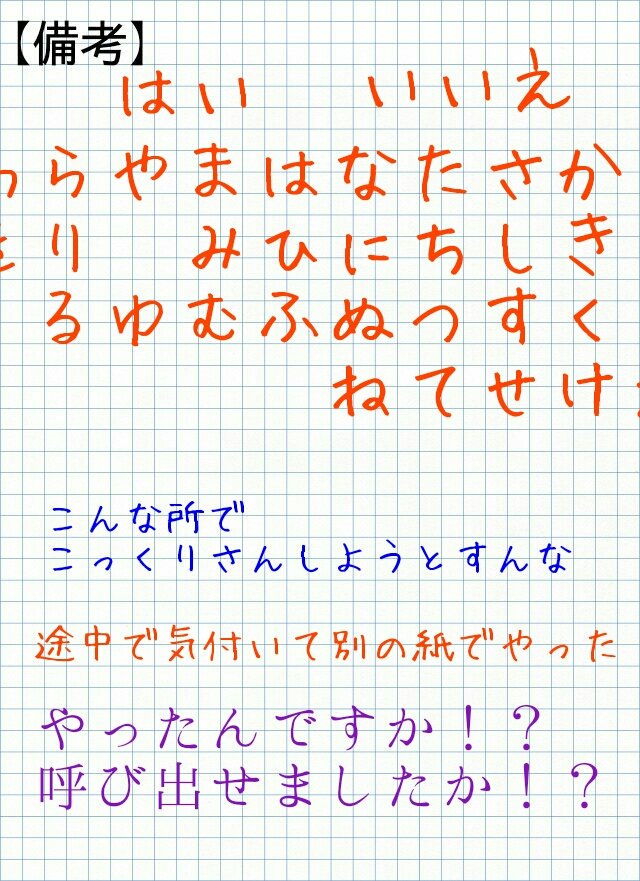 【備考】
はい いいえ
わらやまはなたさか
をり みひにちしき
るゆむふぬつすく
ねてせけ
こんな所で
こっくりさんしようとすんな
途中で気付いて別の紙でやった
やったんですか!?
呼び出せましたか!?